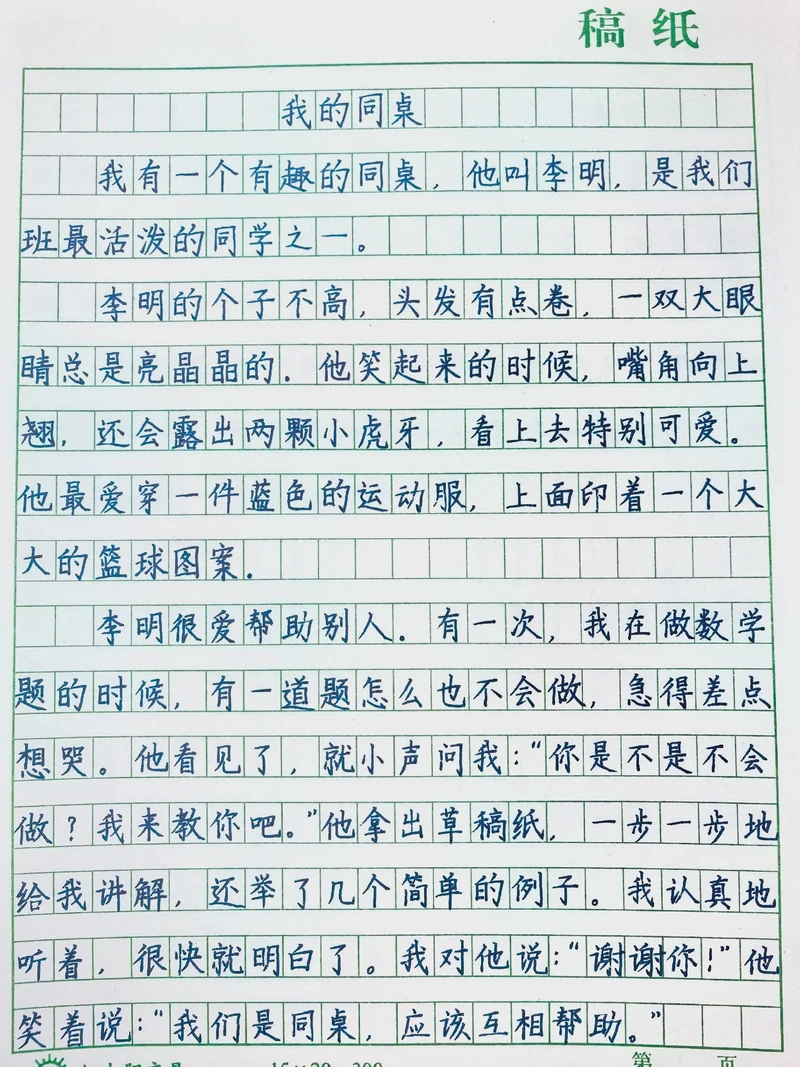 稿纸
我的同桌
我有一个有趣的同桌，他叫李明，是我们
班最活泼的同学之一。
李明的个子不高，头发有点卷，一双大眼
睛总是亮晶晶的．他笑起来的时候，嘴角向上
翘，还会露出两颗小虎牙，看上去特别可爱。
他最爱穿一件蓝色的运动服，上面印着一个大
大的篮球图案．
李明很爱帮助别人．有一次，我在做数学
题的时候，有一道题怎么也不会做，急得差点
想哭。他看见了，就小声问我：“你是不是不会
做？我来教你吧。”他拿出草稿纸，一步一步地
给我讲解，还举了几个简单的例子。我认真地
听着，很快就明白了。我对他说：“谢谢你！”他
笑着说：“我们是同桌，应该互相帮助。”
第 页